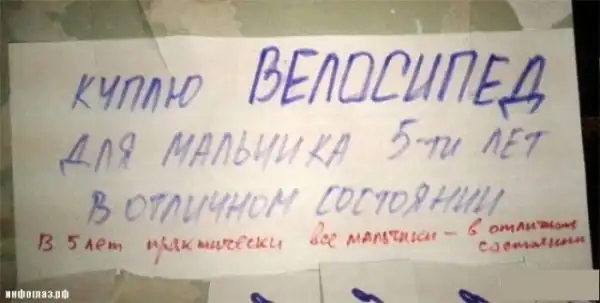 КУПЛЮ ВЕЛОСИПЕД
ДЛЯ МАЛЬЧИКА 5-ти ЛЕТ
В ОТЛИЧНОМ СОСТОЯНИИ
В 5 лет практически все мальчики – в отличном
состоянии
инфоглаз.рф